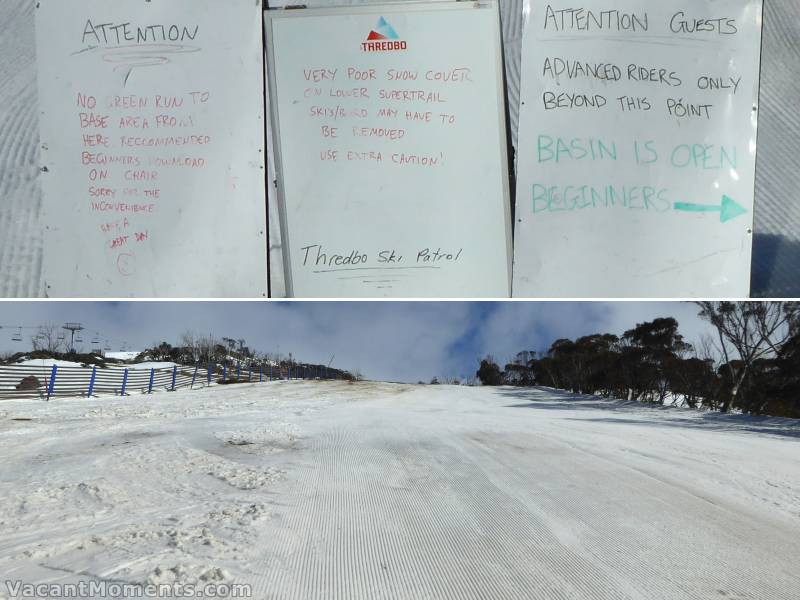 ATTENTION
NO GREEN RUN TO
BASE AREA FROM
HERE. RECCOMMENDED
BEGINNERS DOWNLOAD
ON CHAIR
SORRY FOR THE
INCONVENIENCE
HAVE A
GREAT DAY
THREDBO
VERY POOR SNOW COVER
ON LOWER SUPERTRAIL
SKI'S/BOARD MAY HAVE TO
BE REMOVED
USE EXTRA CAUTION!
Thredbo Ski Patrol
ATTENTION GUESTS
ADVANCED RIDERS ONLY
BEYOND THIS POINT
BASIN IS OPEN
BEGINNERS
VacantMoments.com